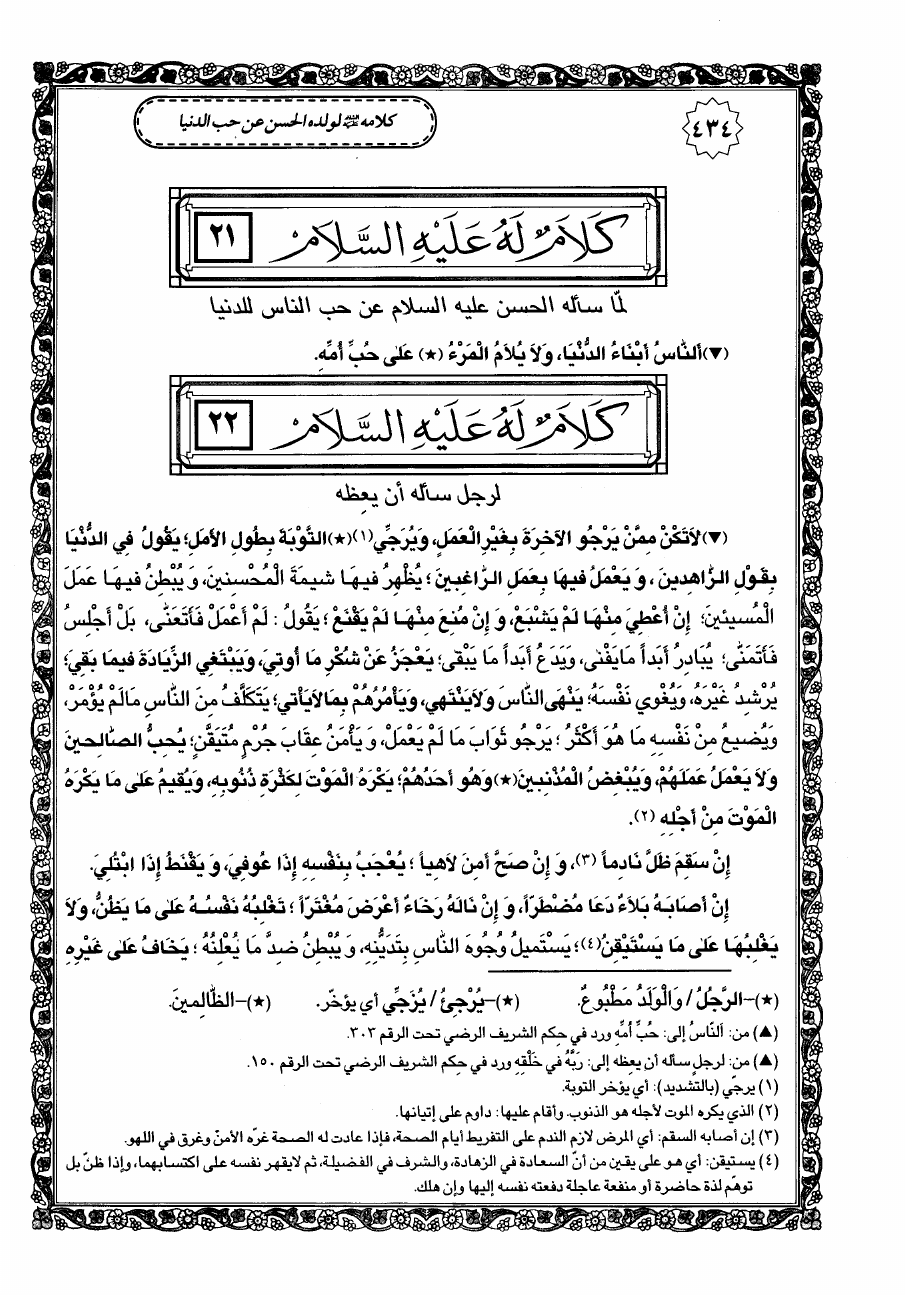 ٤٣٤
كلامه عليه السلام لولده الحسن عن حب الدنيا
كَلاَمٌ لَهُ عَلَيْهِ السَّلاَمْ
٢١
لمّا سأله الحسن عليه السلام عن حب الناس للدنيا
(▼) أَلنَّاسُ أَبْنَاءُ الدُّنْيَا، وَلاَ يُلاَمُ الْمَرْءُ (★) عَلى حُبِّ أُمِّهِ.
كَلاَمٌ لَهُ عَلَيْهِ السَّلاَمْ
٢٢
لرجل سأله أن يعظه
(▼) لاَتَكُنْ مِمَّنْ يَرْجُو الآخِرَةَ بِغَيْرِ الْعَمَلِ، وَيُرَجِّي (١) (★) التَّوْبَةَ بِطُولِ الأَمَلِ؛ يَقُولُ فِي الدُّنْيَا
بِقَوْلِ الزَّاهِدينَ، وَ يَعْمَلُ فيهَا بِعَمَلِ الرَّاغِبينَ؛ يُظْهِرُ فيهَا شيمَةَ الْمُحْسِنينَ، وَ يُبْطِنُ فيهَا عَمَلَ
الْمُسيئينَ؛ إِنْ أُعْطِيَ مِنْهَا لَمْ يَشْبَعْ، وَ إِنْ مُنِعَ مِنْهَا لَمْ يَقْنَعْ؛ يَقُولُ: لَمْ أَعْمَلْ فَأَتَعَنّى، بَلْ أَجْلِسُ
فَأَتَمَنّى؛ يُبَادِرُ أَبَداً مَايَفْنى، وَيَدَعُ أَبَداً مَا يَبْقى؛ يَعْجَزُ عَنْ شُكْرِ مَا أُوتِيَ، وَيَبْتَغِي الزِّيَادَةَ فيمَا بَقِيَ؛
يُرْشِدُ غَيْرَهُ، وَيُغْوي نَفْسَهُ؛ يَنْهَى النَّاسَ وَلاَيَنْتَهي، وَيَأْمُرُهُمْ بِمَالاَيَأْتي؛ يَتَكَلَّفُ مِنَ النَّاسِ مَالَمْ يُؤْمَرْ،
وَيُضيعُ مِنْ نَفْسِهِ مَا هُوَ أَكْثَرُ؛ يَرْجُو ثَوَابَ مَا لَمْ يَعْمَلْ، وَ يَأْمَنُ عِقَابَ جُرْمٍ مُتَيَقَّنٍ؛ يُحِبُّ الصَّالِحينَ
وَلاَ يَعْمَلُ عَمَلَهُمْ، وَيُبْغِضُ الْمُذْنِبينَ (★) وَهُوَ أَحَدُهُمْ؛ يَكْرَهُ الْمَوْتَ لِكَثْرَةِ ذُنُوبِهِ، وَيُقيمُ عَلى مَا يَكْرَهُ
الْمَوْتَ مِنْ أَجْلِهِ (٢).
إِنْ سَقِمَ ظَلَّ نَادِماً (٣)، وَ إِنْ صَحَّ أَمِنَ لاَهِياً؛ يُعْجَبُ بِنَفْسِهِ إِذَا عُوفِيَ، وَ يَقْنَطُ إِذَا ابْتُلِيَ.
إِنْ أَصَابَهُ بَلاَءٌ دَعَا مُضْطَرّاً، وَ إِنْ نَالَهُ رَخَاءٌ أَعْرَضَ مُغْتَرّاً؛ تَغْلِبُهُ نَفْسُهُ عَلى مَا يَظُنُّ، وَلاَ
يَغْلِبُهَا عَلى مَا يَسْتَيْقِنُ (٤)؛ يَسْتَميلُ وُجُوهَ النَّاسِ بِتَدَيُّنِهِ، وَ يُبْطِنُ ضِدَّ مَا يُعْلِنُهُ؛ يَخَافُ عَلى غَيْرِهِ
(★)-الرَّجُلُ / وَالْوَلَدُ مَطْبُوعٌ. (★)-يُرْجِئُ / يُزَجِّي أي يؤخّر. (★)-الظَّالِمينَ.
(▲) من: اَلنَّاسُ إلى: حُبِّ أُمِّهِ ورد في حِكم الشريف الرضي تحت الرقم ٣٠٣.
(▲) من: لرجلٍ سأله أن يعظه إلى: رَبَّهُ في خَلْقِهِ ورد في حِكم الشريف الرضي تحت الرقم ١٥٠.
(١) يرجّي (بالتشديد): أي يؤخر التوبة.
(٢) الذي يكره الموت لأجله هو الذنوب. وأقام عليها: داوم على إتيانها.
(٣) إن أصابه السقم: أي المرض لازم الندم على التفريط أيام الصحة، فإذا عادت له الصحة غرّه الأمن وغرق في اللهو.
(٤) يستيقن: أي هو على يقين من أنّ السعادة في الزهادة، والشرف في الفضيلة، ثم لايقهر نفسه على اكتسابهما، وإذا ظنّ بل
توهّم لذة حاضرة أو منفعة عاجلة دفعته نفسه إليها وإن هلك.